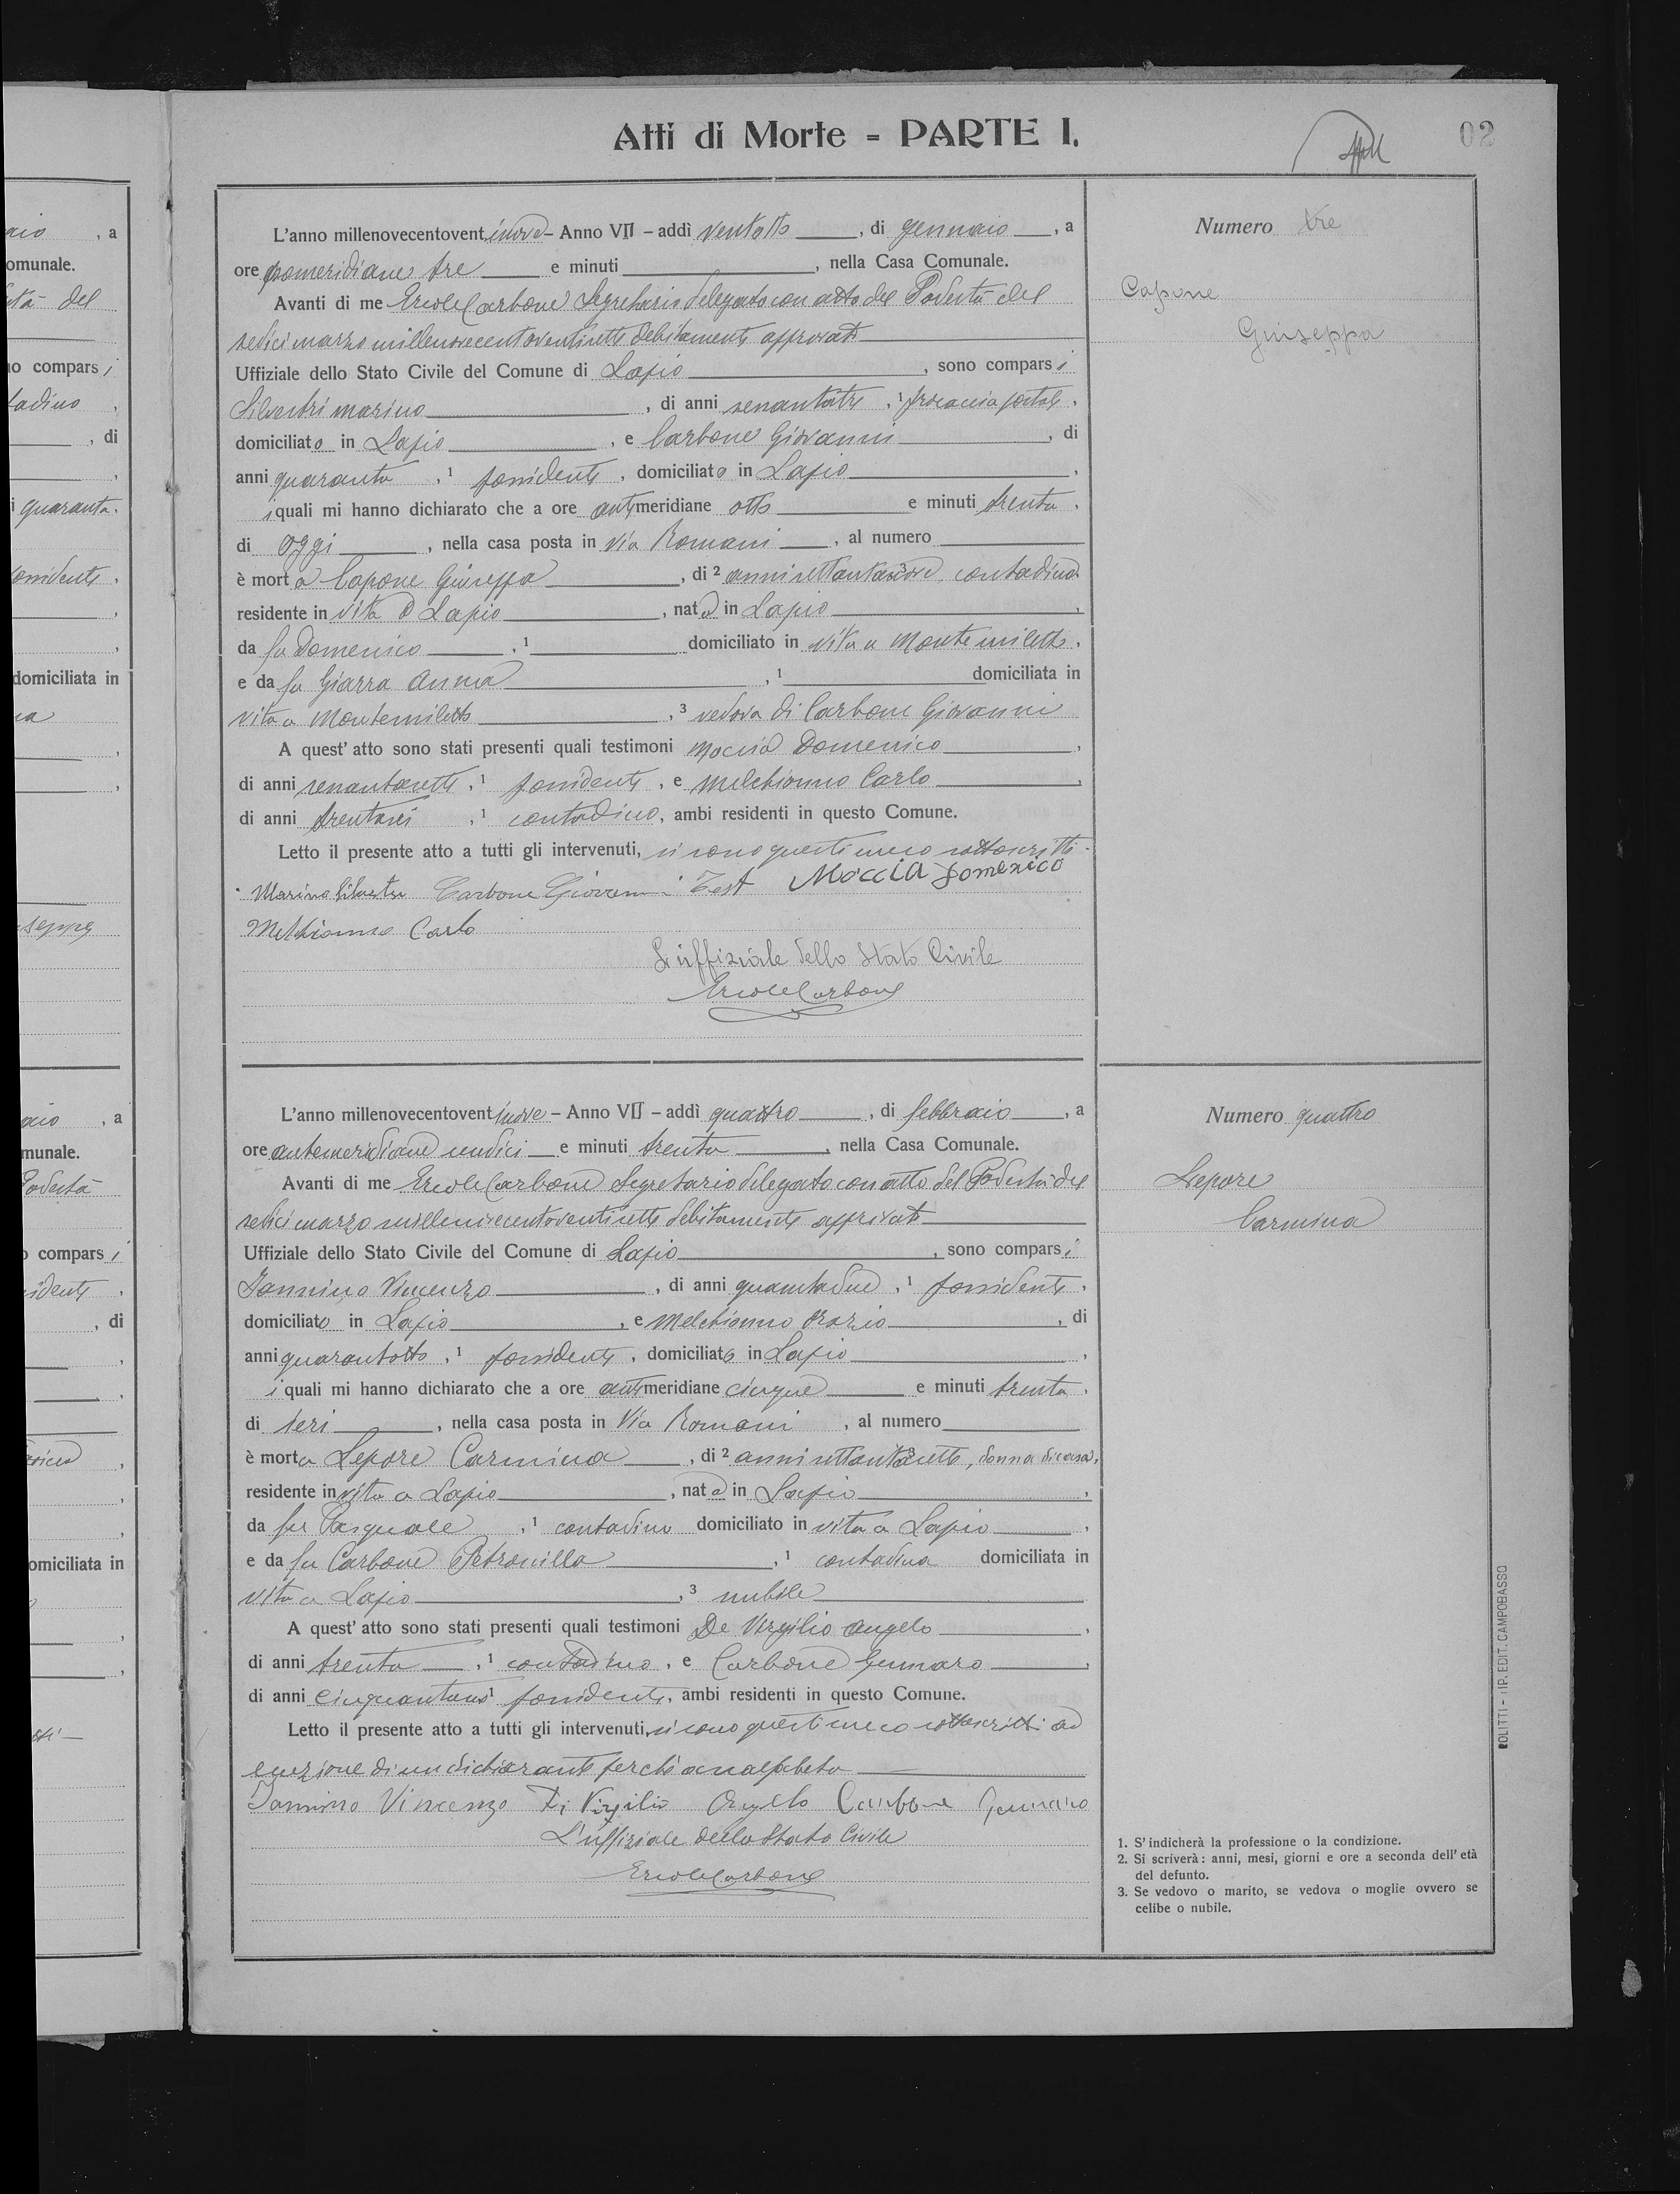 Atti di Morte = PARTE I.
02
L'anno millenovecentoventinove - Anno VII - addì ventotto, di gennaio, a
ore pomeridiane tre e minuti, nella Casa Comunale.
Avanti di me Ercole Carbone Segretario delegato con atto del Podestà del
sedici marzo millenovecentoventisette debitamente approvato
Uffiziale dello Stato Civile del Comune di Lapio, sono comparsi
Silvestri Marino, di anni sessantatre, 1 procaccia postale,
domiciliato in Lapio, e Carbone Giovanni, di
anni quaranta, 1 possidente, domiciliato in Lapio,
i quali mi hanno dichiarato che a ore antimeridiane otto e minuti trenta,
di oggi, nella casa posta in via Romani, al numero
è morta Capone Giuseppa, di 2 anni settantanove, contadina
residente in vita a Lapio, nata in Lapio,
da fu Domenico, 1 domiciliato in vita a Montemiletto,
e da fu Giarra Anna, 1 domiciliata in
vita a Montemiletto, 3 vedova di Carbone Giovanni
A quest'atto sono stati presenti quali testimoni Moccia Domenico,
di anni sessantasette, 1 possidente, e Melchionno Carlo,
di anni trentasei, 1 contadino, ambi residenti in questo Comune.
Letto il presente atto a tutti gli intervenuti, si sono questi meco sottoscritti.
Marino Silvestri Carbone Giovanni Test Moccia Domenico
Melchionno Carlo
L'uffiziale dello Stato Civile
Ercole Carbone
Numero tre
Capone
Giuseppa
L'anno millenovecentoventinove - Anno VII - addì quattro, di febbraio, a
ore antimeridiane undici e minuti trenta, nella Casa Comunale.
Avanti di me Ercole Carbone Segretario delegato con atto del Podestà del
sedici marzo millenovecentoventisette debitamente approvato
Uffiziale dello Stato Civile del Comune di Lapio, sono comparsi
Iannino Vincenzo, di anni quarantadue, 1 possidente,
domiciliato in Lapio, e Melchionno Orazio, di
anni quarantotto, 1 possidente, domiciliato in Lapio,
i quali mi hanno dichiarato che a ore antimeridiane cinque e minuti trenta,
di ieri, nella casa posta in Via Romani, al numero
è morta Lepore Carmina, di 2 anni settantasette, donna di casa,
residente in vita a Lapio, nata in Lapio,
da fu Pasquale, 1 contadino domiciliato in vita a Lapio,
e da fu Carbone Petronilla, 1 contadina domiciliata in
vita a Lapio, 3 nubile
A quest'atto sono stati presenti quali testimoni De Virgilio Angelo,
di anni trenta, 1 contadino, e Carbone Gennaro,
di anni cinquantuno 1 possidente, ambi residenti in questo Comune.
Letto il presente atto a tutti gli intervenuti, si sono questi meco sottoscritti ad
eccezione di un dichiarante perchè analfabeta
Iannino Vincenzo Di Virgilio Angelo Carbone Gennaro
L'uffiziale dello Stato Civile
Ercole Carbone
Numero quattro
Lepore
Carmina
1. S'indicherà la professione o la condizione.
2. Si scriverà: anni, mesi, giorni e ore a seconda dell'età
del defunto.
3. Se vedovo o marito, se vedova o moglie ovvero se
celibe o nubile.
COLITTI - TIP. EDIT. CAMPOBASSO